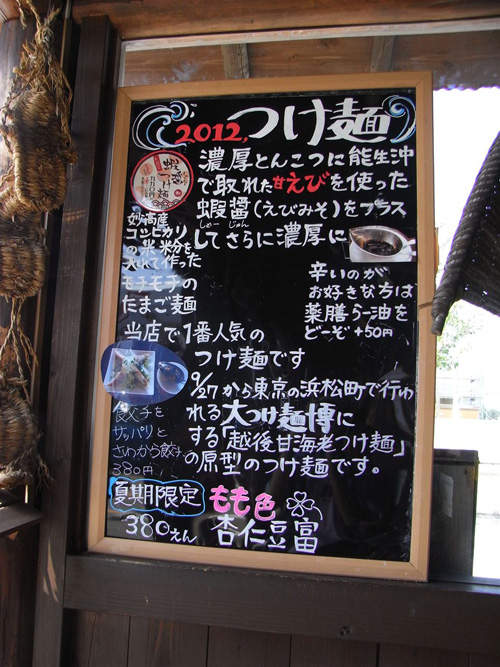 2012,つけ麺
濃厚とんこつに能生沖
で取れた甘えびを使った
蝦醤(えびみそ)をプラス
しゃー じゃん
してさらに濃厚に
蝦醤
つけ麺
妙高産
コシヒカリ
の米粉を
入れて作った
モチモチの
たまご麺
辛いのが
お好きな方は
薬膳らー油を
どーぞ+50円
当店で1番人気の
つけ麺です
9/27から東京の浜松町で行わ
れる大つけ麺博に
する「越後甘海老つけ麺」
の原型のつけ麺です。
餃子を
サッパリと
さわから餃子
380円
夏期限定
もも色
380えん
杏仁豆富